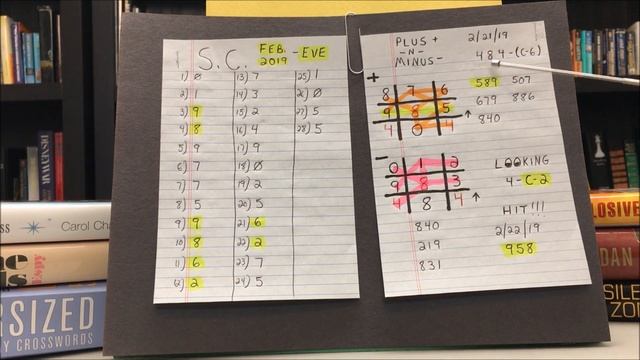 S.C. FEB. 2019 -EVE
1) 0
2) 1
3) 9
4) 8
5) 9
6) 7
7) 7
8) 5
9) 9
10) 8
11) 6
12) 2
13) 7
14) 3
15) 2
16) 4
17) 9
18) 0
19) 2
20) 5
21) 6
22) 2
23) 7
24) 5
25) 1
26) 0
27) 5
28) 5
PLUS +
-N-
MINUS-
2/21/19
484-(C-6)
+
8 7 6
9 8 5
4 0 4
589 507
679 886
840
-
0 1 2
9 8 3
4 8 4
840
219
831
LOOKING
4-C-2
HIT!!!
2/22/19
958
Carol
Espy
SIZED
CROSSWORDS
DISNEY WAR
PLOSIVE
DAN